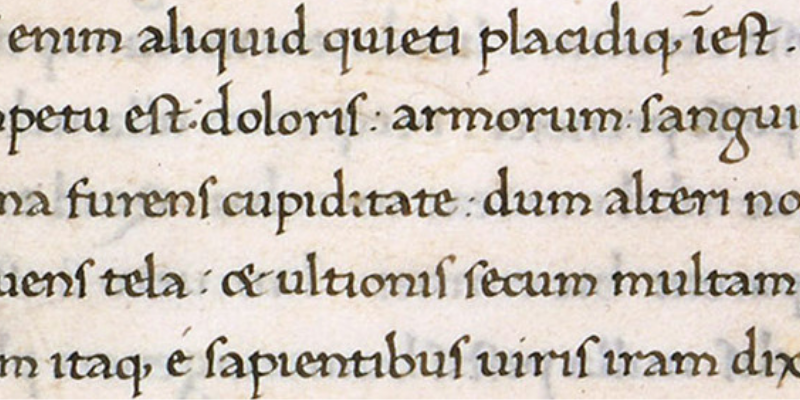 enim aliquid quieti placidiq, īest .
petu est: doloris : armorum : sangui
na furens cupiditate : dum alteri no
uens tela : & ultionis secum multam
m itaq, é sapientibus uiris iram dix